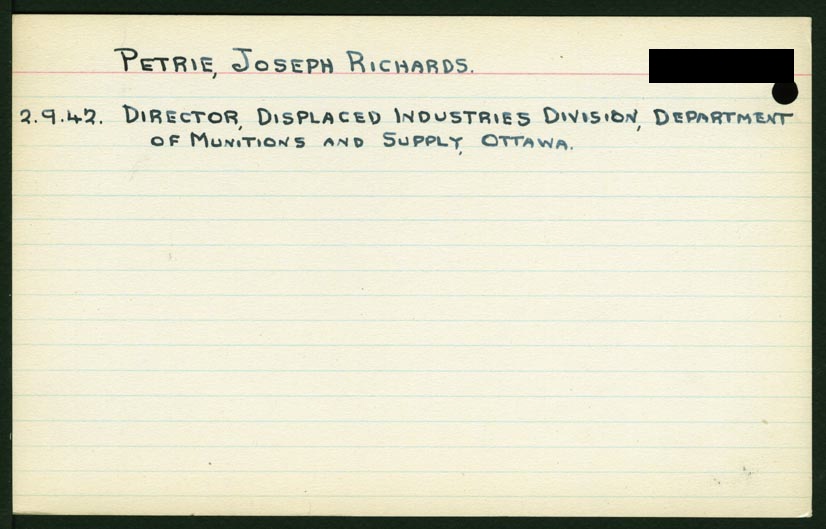 PETRIE, JOSEPH RICHARDS.
2.9.42. DIRECTOR, DISPLACED INDUSTRIES DIVISION, DEPARTMENT
OF MUNITIONS AND SUPPLY, OTTAWA.